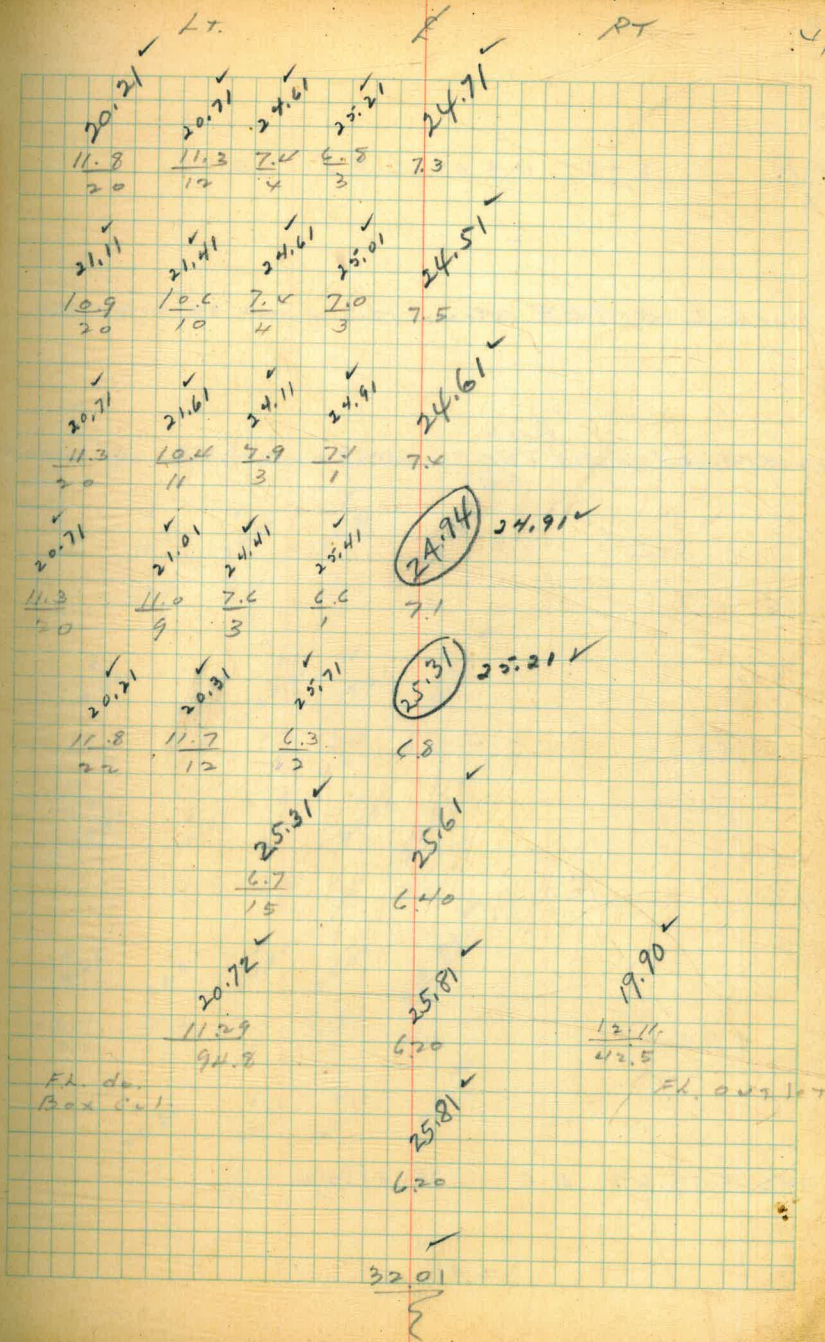 LT. ℄ RT 4
20.21✓ 20.71✓ 24.61✓ 25.21✓ 24.71✓
11.8 11.3 7.4 6.8 7.3
20 12 4 3
21.11✓ 21.41✓ 24.61✓ 25.01✓ 24.51✓
10.9 10.6 7.4 7.0 7.5
20 10 4 3
20.71✓ 21.61✓ 24.11✓ 24.91✓ 24.61✓
11.3 10.4 7.9 7.1 7.4
20 11 3 1
20.71✓ 21.01✓ 24.41✓ 25.41✓ 24.94 24.91✓
11.3 11.0 7.6 6.6 7.1
20 9 3 1
20.21✓ 20.31✓ 25.71✓ 25.31 25.21✓
11.8 11.7 6.3 6.8
22 12 2
25.31✓ 25.61✓
6.7 6.40
15
20.72✓ 25.81✓ 19.90✓
11.29 6.20 12.11
94.8 42.5
FL. do. FL. outlet
Box Cul.
25.81✓
6.20
✓
32.01